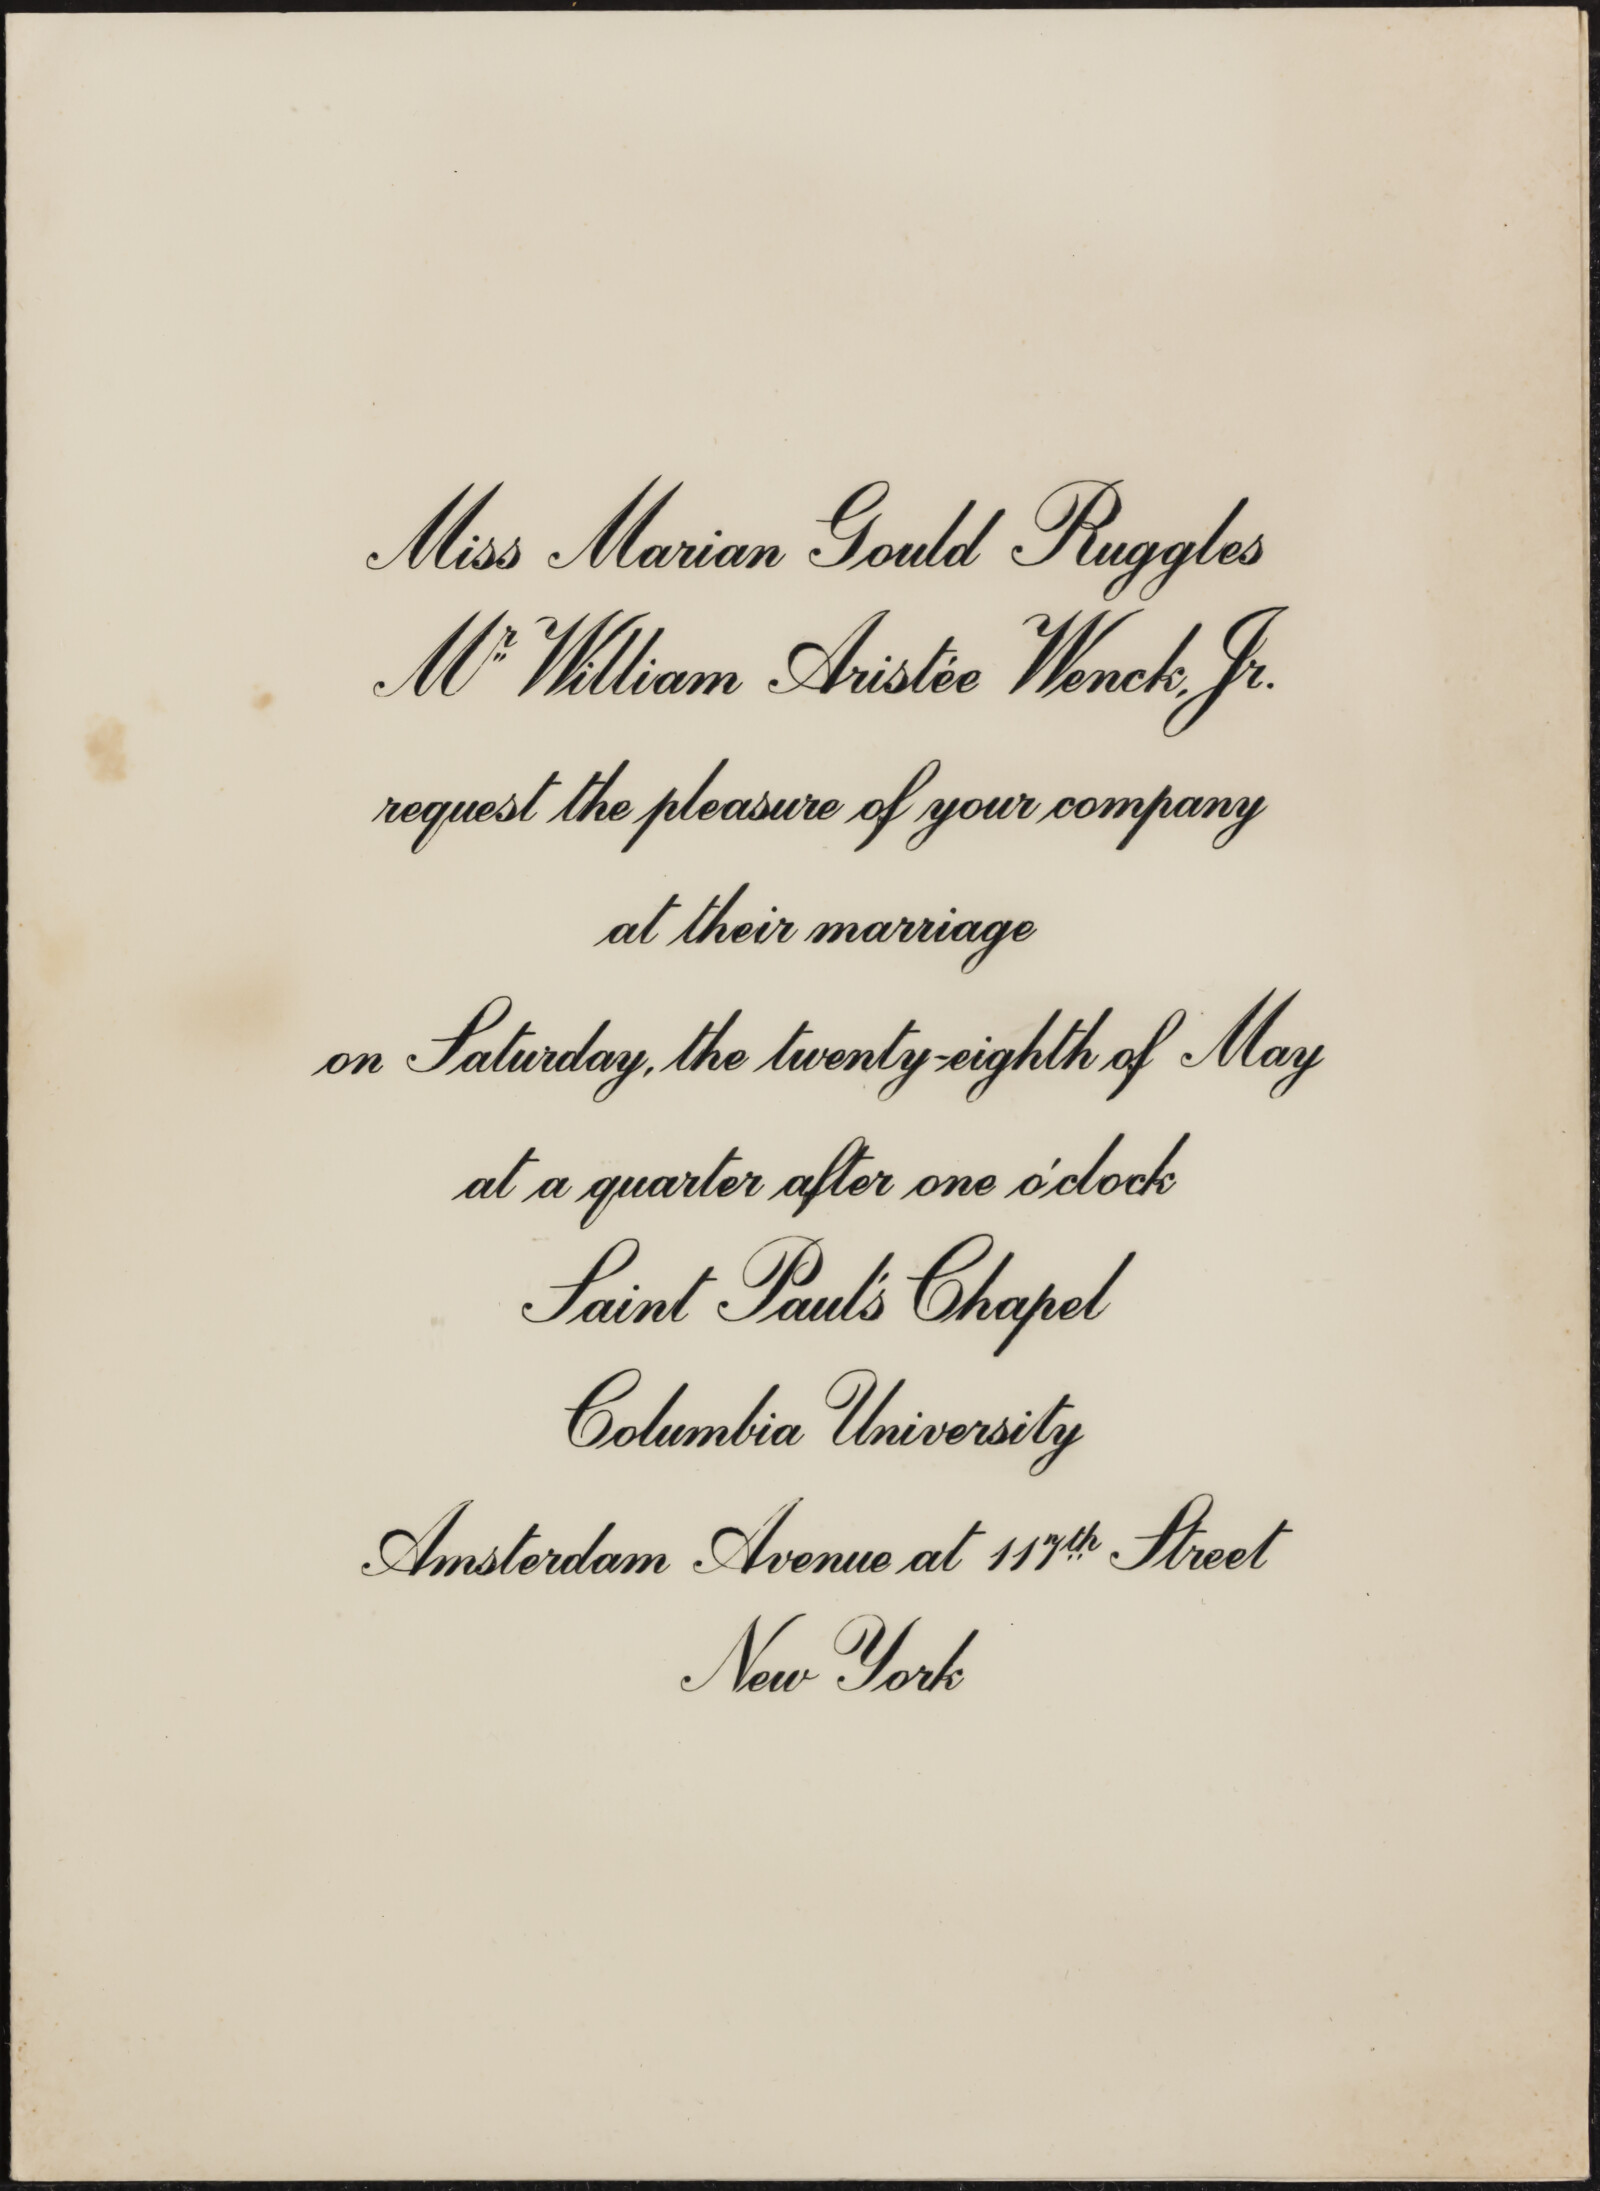 Miss Marian Gould Ruggles
Mr. William Aristée Wenck, Jr.
request the pleasure of your company
at their marriage
on Saturday, the twenty-eighth of May
at a quarter after one o'clock
Saint Paul's Chapel
Columbia University
Amsterdam Avenue at 117th Street
New York